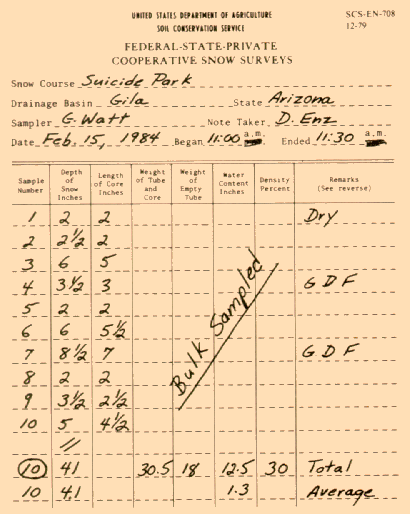 UNITED STATES DEPARTMENT OF AGRICULTURE SCS-EN-708
SOIL CONSERVATION SERVICE 12-79
FEDERAL-STATE-PRIVATE
COOPERATIVE SNOW SURVEYS
Snow Course Suicide Park
Drainage Basin Gila State Arizona
Sampler G. Watt Note Taker D. Enz
Date Feb. 15, 1984 Began 11:00 a.m. Ended 11:30 a.m.
Sample Number Depth of Snow Inches Length of Core Inches Weight of Tube and Core Weight of Empty Tube Water Content Inches Density Percent Remarks (See reverse)
1 2 2 Dry
2 2 1/2 2
3 6 5
4 3 1/2 3 G D F
5 2 2
6 6 5 1/2
7 8 1/2 7 G D F
8 2 2
9 3 1/2 2 1/2
10 5 4 1/2
Bulk Sampled
//
10 41 30.5 18 12.5 30 Total
10 4.1 1.3 Average